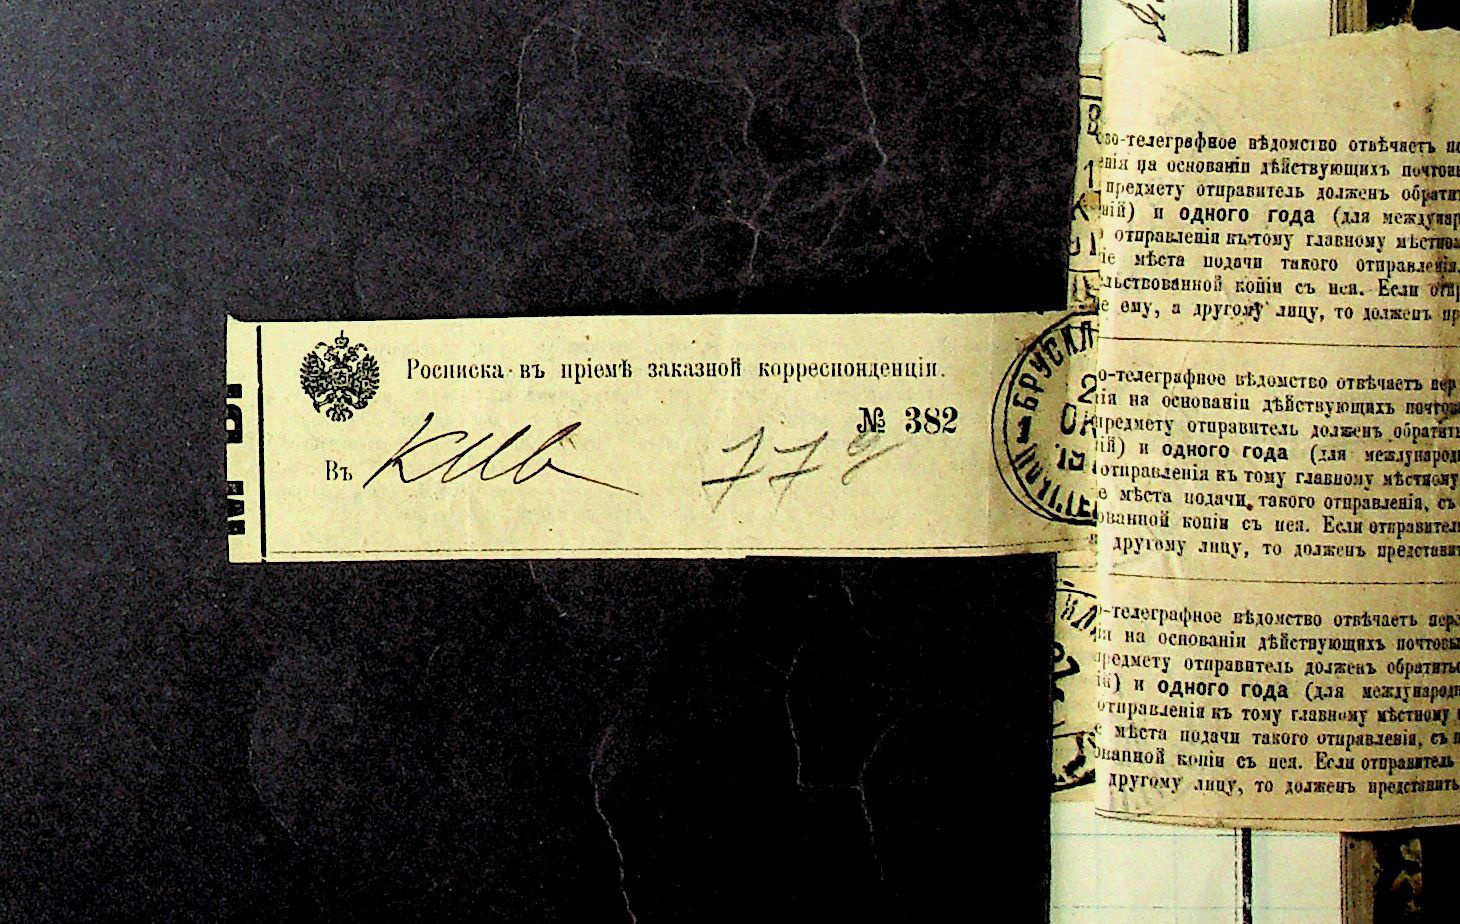 Росписка въ пріемѣ заказной корреспонденціи.
№ 382
Въ Кив 779
БРУСИЛ
2
ОК
19
ПОЧТ.ТЕЛ
во-телеграфное вѣдомство отвѣчаетъ
енія на основаніи дѣйствующихъ почтов
предмету отправитель долженъ обрати
ній) и одного года (для междунар
отправленія къ тому главному мѣстном
іе мѣста подачи такого отправленія
льствованной копіи съ нея. Если отпр
е ему, а другому лицу, то долженъ пр
о-телеграфное вѣдомство отвѣчаетъ пер
ія на основаніи дѣйствующихъ почтов
предмету отправитель долженъ обратить
ій) и одного года (для международн
отправленія къ тому главному мѣстному
е мѣста подачи такого отправленія, съ
ованной копіи съ нея. Если отправител
другому лицу, то долженъ представит
о-телеграфное вѣдомство отвѣчаетъ пере
ія на основаніи дѣйствующихъ почтовы
предмету отправитель долженъ обратитьс
ій) и одного года (для международн
отправленія къ тому главному мѣстному
е мѣста подачи такого отправленія, съ п
ованной копіи съ нея. Если отправитель
другому лицу, то долженъ представить